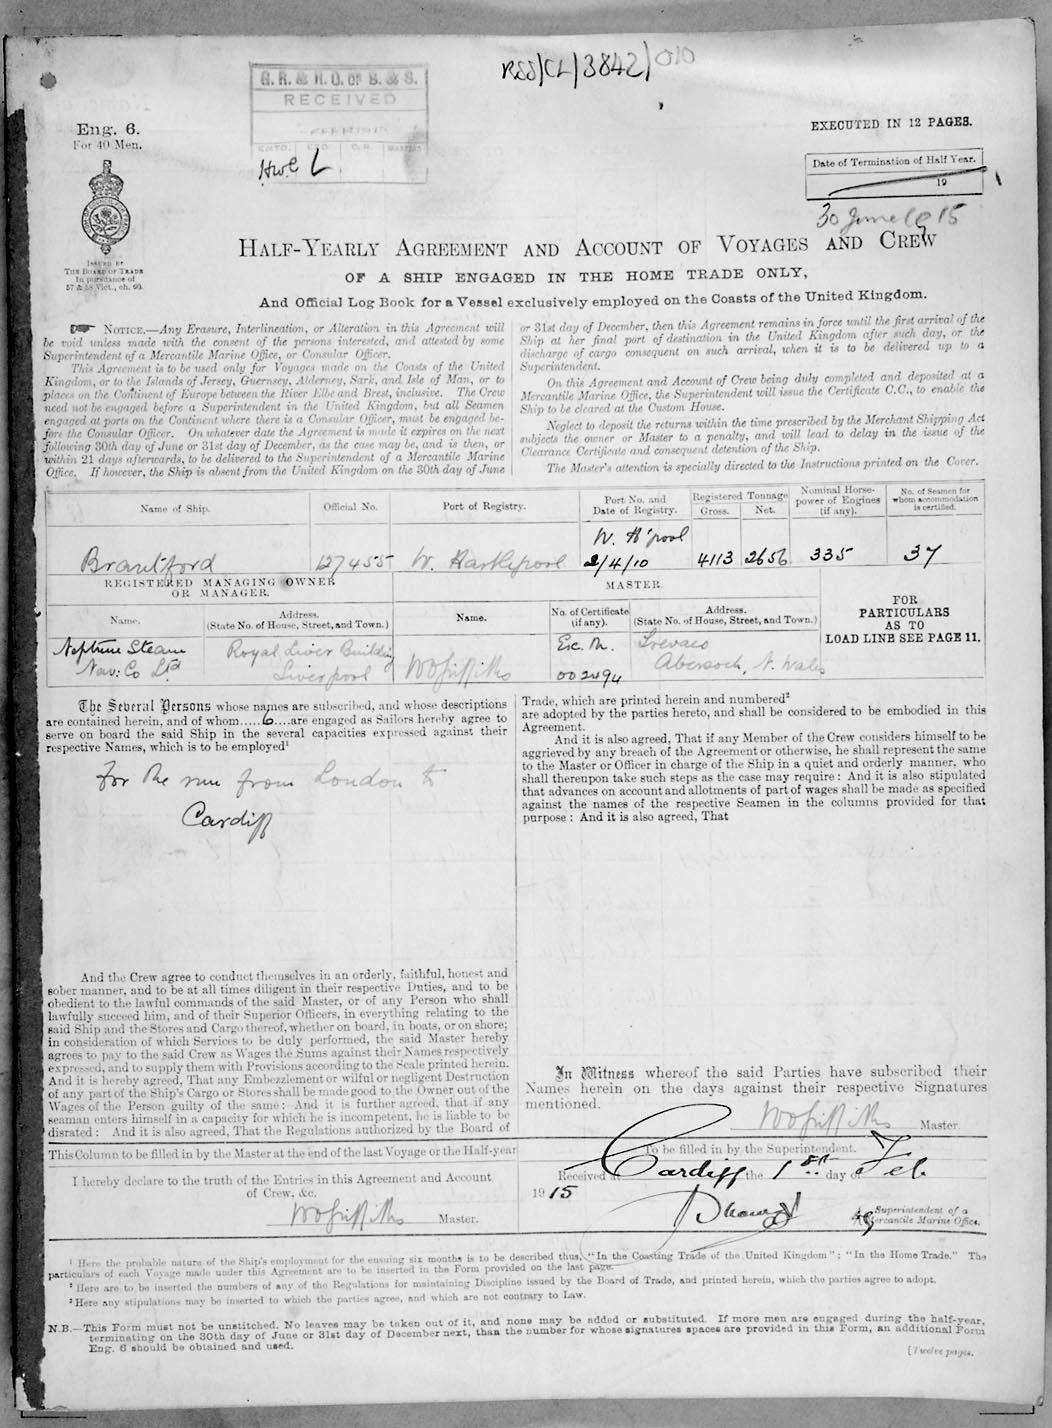 RSS/CL/3842/010
G. R. & R. O. OF S. & S.
RECEIVED
EXECUTED IN 12 PAGES.
Eng. 6.
For 40 Men.
Date of Termination of Half Year.
19
30 June 1915
ISSUED BY
THE BOARD OF TRADE
In pursuance of
57 & 58 Vict., ch. 60.
HALF-YEARLY AGREEMENT AND ACCOUNT OF VOYAGES AND CREW
OF A SHIP ENGAGED IN THE HOME TRADE ONLY,
And Official Log Book for a Vessel exclusively employed on the Coasts of the United Kingdom.
NOTICE.—Any Erasure, Interlineation, or Alteration in this Agreement will
be void unless made with the consent of the persons interested, and attested by some
Superintendent of a Mercantile Marine Office, or Consular Officer.
This Agreement is to be used only for Voyages made on the Coasts of the United
Kingdom, or to the Islands of Jersey, Guernsey, Alderney, Sark, and Isle of Man, or to
places on the Continent of Europe between the River Elbe and Brest, inclusive. The Crew
need not be engaged before a Superintendent in the United Kingdom, but all Seamen
engaged at ports on the Continent where there is a Consular Officer, must be engaged be-
fore the Consular Officer. On whatever date the Agreement is made it expires on the next
following 30th day of June or 31st day of December, as the case may be, and is then, or
within 21 days afterwards, to be delivered to the Superintendent of a Mercantile Marine
Office. If however, the Ship is absent from the United Kingdom on the 30th day of June
or 31st day of December, then this Agreement remains in force until the first arrival of the
Ship at her final port of destination in the United Kingdom after such day, or the
discharge of cargo consequent on such arrival, when it is to be delivered up to a
Superintendent.
On this Agreement and Account of Crew being duly completed and deposited at a
Mercantile Marine Office, the Superintendent will issue the Certificate C.C., to enable the
Ship to be cleared at the Custom House.
Neglect to deposit the returns within the time prescribed by the Merchant Shipping Act
subjects the owner or Master to a penalty, and will lead to delay in the issue of the
Clearance Certificate and consequent detention of the Ship.
The Master's attention is specially directed to the Instructions printed on the Cover.
Name of Ship.
Official No.
Port of Registry.
Port No. and
Date of Registry.
Registered Tonnage
Gross.
Net.
Nominal Horse-
power of Engines
(if any).
No. of Seamen for
whom accommodation
is certified.
Brantford
127455
W. Hartlepool
W. H'pool
2/4/10
4113
2656
335
37
REGISTERED MANAGING OWNER
OR MANAGER.
MASTER.
FOR
PARTICULARS
AS TO
LOAD LINE SEE PAGE 11.
Name.
Address.
(State No. of House, Street, and Town.)
Name.
No. of Certificate
(if any).
Address.
(State No. of House, Street, and Town.)
Neptune Steam
Nav: Co Ltd
Royal Liver Building
Liverpool
WO Griffiths
002494
Abersoch, N. Wales
The Several Persons whose names are subscribed, and whose descriptions
are contained herein, and of whom.....6....are engaged as Sailors hereby agree to
serve on board the said Ship in the several capacities expressed against their
respective Names, which is to be employed¹
For the run from London to
Cardiff
And the Crew agree to conduct themselves in an orderly, faithful, honest and
sober manner, and to be at all times diligent in their respective Duties, and to be
obedient to the lawful commands of the said Master, or of any Person who shall
lawfully succeed him, and of their Superior Officers, in everything relating to the
said Ship and the Stores and Cargo thereof, whether on board, in boats, or on shore;
in consideration of which Services to be duly performed, the said Master hereby
agrees to pay to the said Crew as Wages the Sums against their Names respectively
expressed, and to supply them with Provisions according to the Scale printed herein.
And it is hereby agreed, That any Embezzlement or wilful or negligent Destruction
of any part of the Ship's Cargo or Stores shall be made good to the Owner out of the
Wages of the Person guilty of the same: And it is further agreed, that if any
seaman enters himself in a capacity for which he is incompetent, he is liable to be
disrated: And it is also agreed, That the Regulations authorized by the Board of
Trade, which are printed herein and numbered²
are adopted by the parties hereto, and shall be considered to be embodied in this
Agreement.
And it is also agreed, That if any Member of the Crew considers himself to be
aggrieved by any breach of the Agreement or otherwise, he shall represent the same
to the Master or Officer in charge of the Ship in a quiet and orderly manner, who
shall thereupon take such steps as the case may require: And it is also stipulated
that advances on account and allotments of part of wages shall be made as specified
against the names of the respective Seamen in the columns provided for that
purpose: And it is also agreed, That
In Witness whereof the said Parties have subscribed their
Names herein on the days against their respective Signatures
mentioned.
WO Griffiths Master.
This Column to be filled in by the Master at the end of the last Voyage or the Half-year
I hereby declare to the truth of the Entries in this Agreement and Account
of Crew, &c.
WO Griffiths Master.
To be filled in by the Superintendent.
Received at Cardiff the 1st day of Feb
1915
Superintendent of a
Mercantile Marine Office.
¹ Here the probable nature of the Ship's employment for the ensuing six months is to be described thus, "In the Coasting Trade of the United Kingdom"; "In the Home Trade." The
particulars of each Voyage made under this Agreement are to be inserted in the Form provided on the last page.
² Here are to be inserted the numbers of any of the Regulations for maintaining Discipline issued by the Board of Trade, and printed herein, which the parties agree to adopt.
³ Here any stipulations may be inserted to which the parties agree, and which are not contrary to Law.
N.B.—This Form must not be unstitched. No leaves may be taken out of it, and none may be added or substituted. If more men are engaged during the half-year,
terminating on the 30th day of June or 31st day of December next, than the number for whose signatures spaces are provided in this Form, an additional Form
Eng. 6 should be obtained and used.
[Twelve pages.